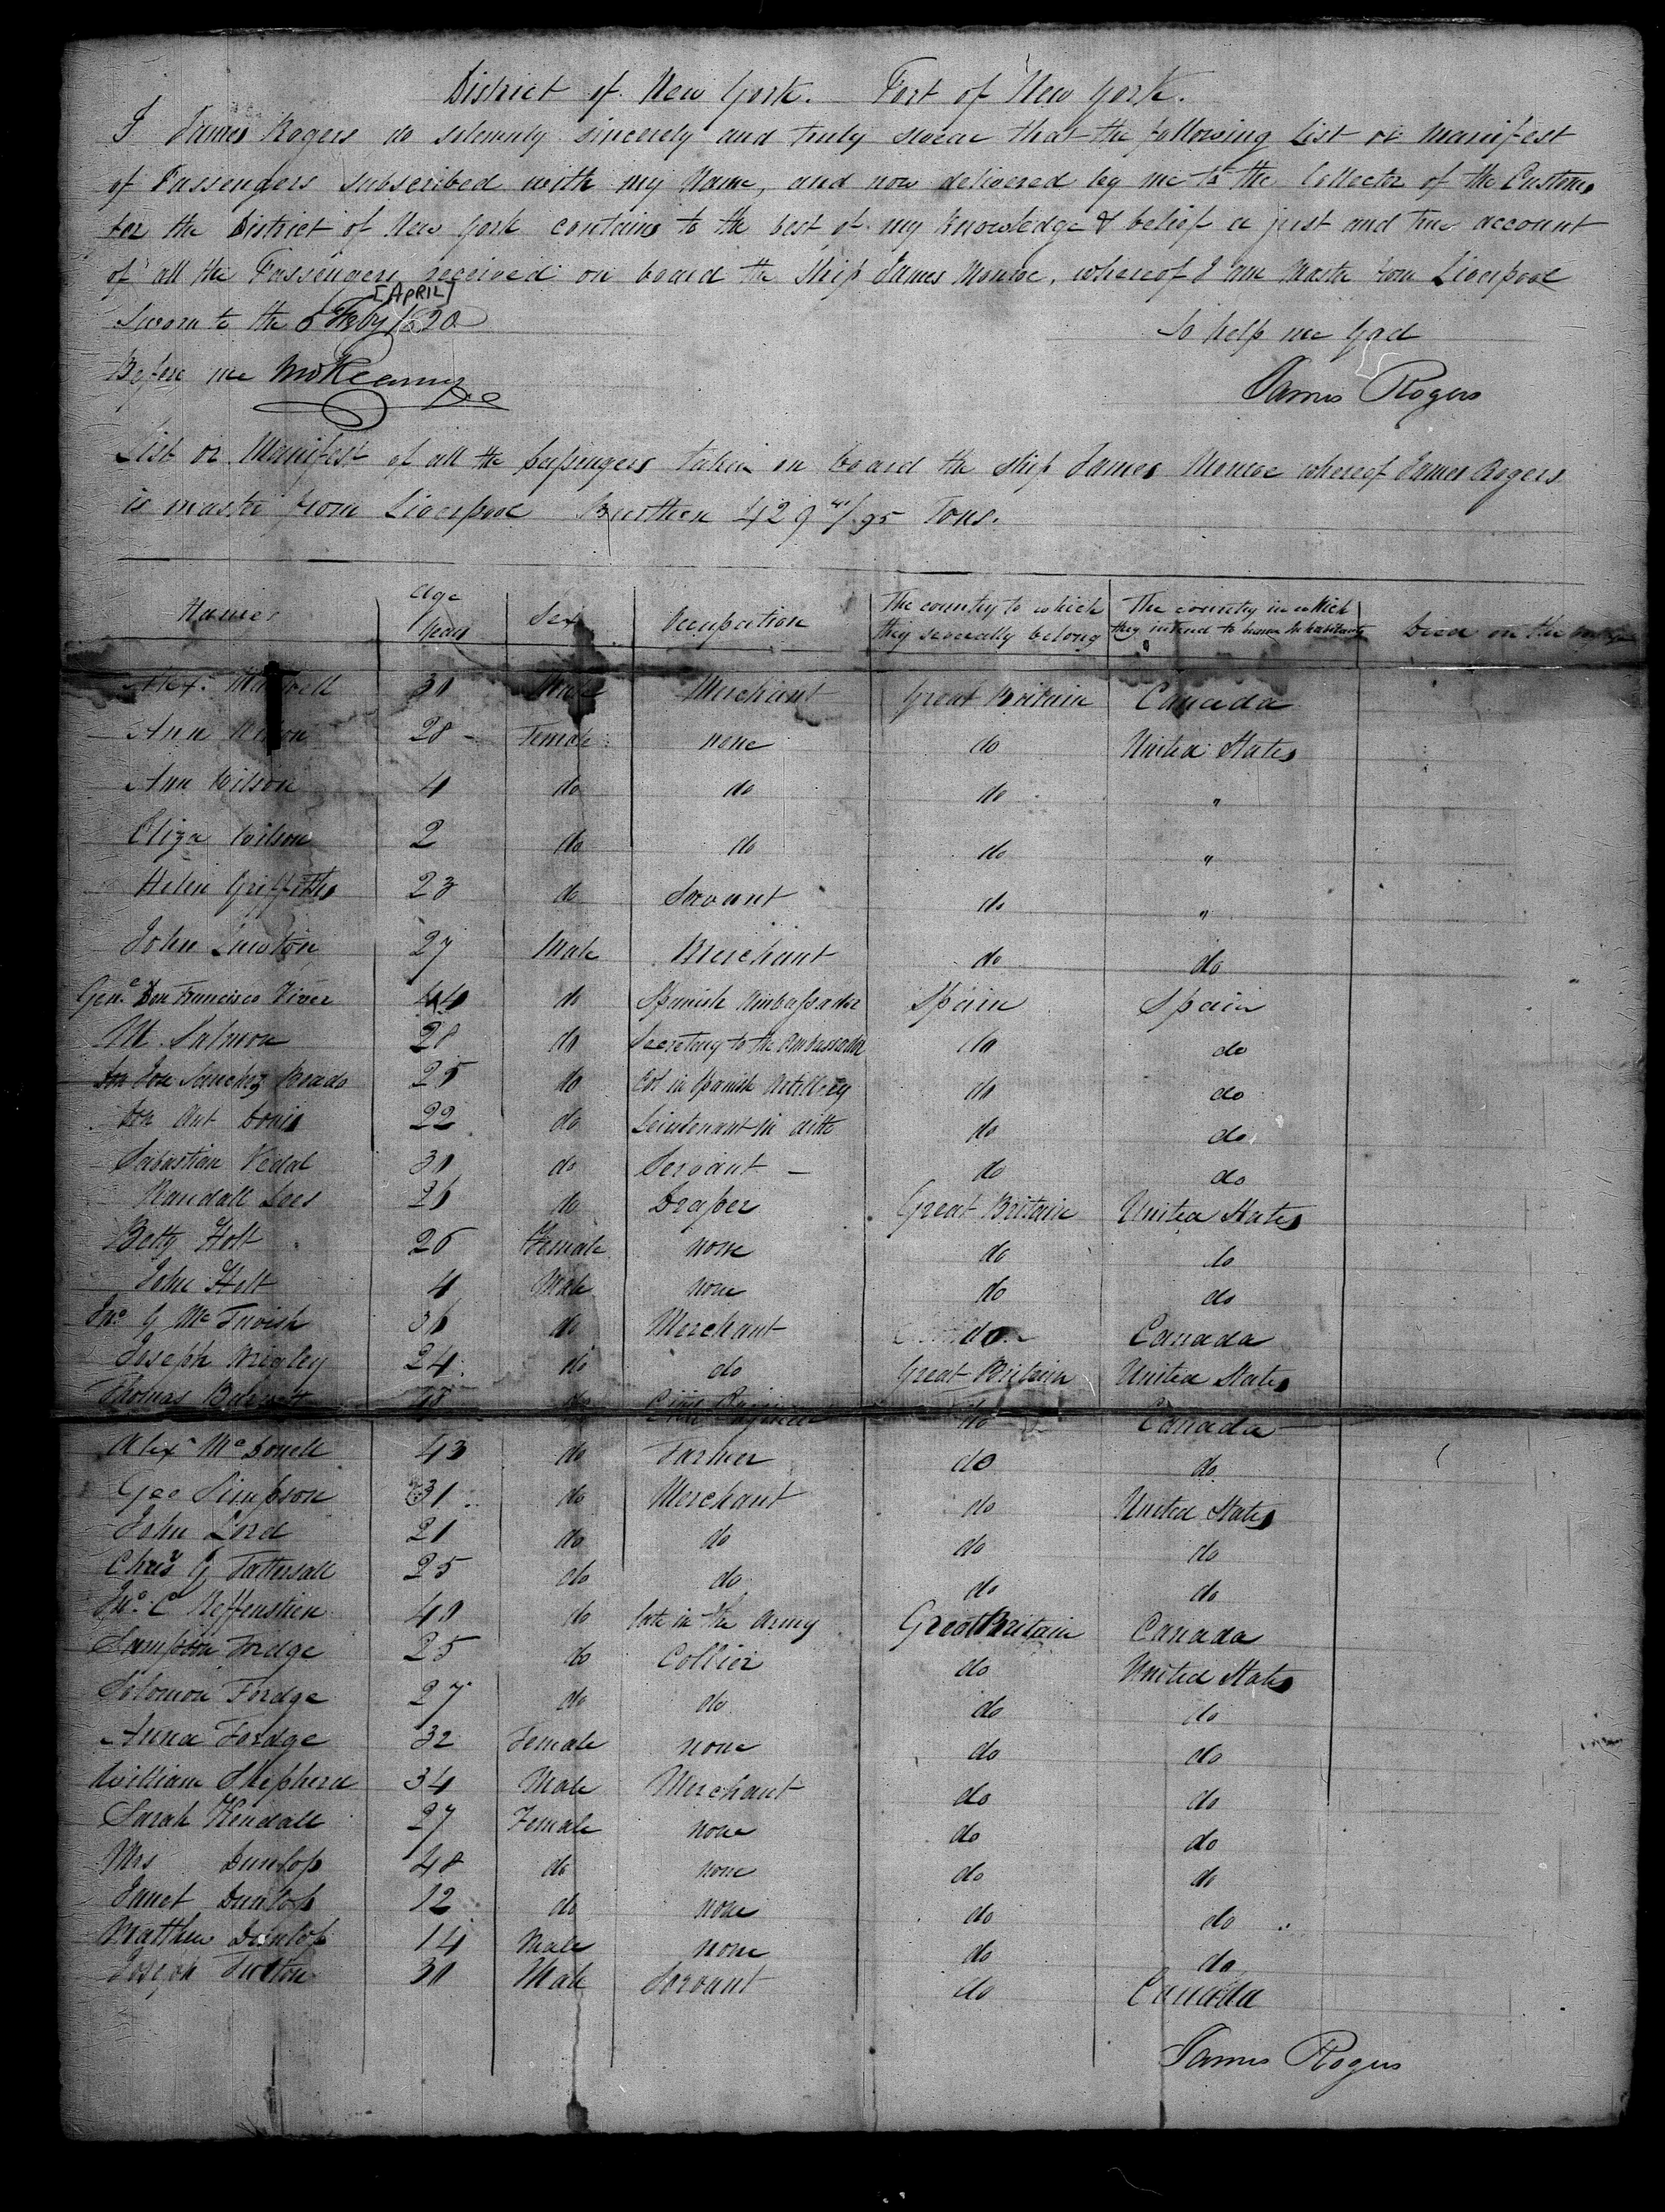 District of New York. Port of New York.
I James Rogers do solemnly sincerely and truly swear that the following List or Manifest
of Passengers subscribed with my Name, and now delivered by me to the Collector of the Customs
for the District of New York contains to the best of my knowledge & belief a just and true account
of all the Passengers received on board the Ship James Monroe, whereof I am Master from Liverpool
[APRIL]
Sworn to the 6 Feby 1820 So help me God
Before me James Rogers
List or Manifest of all the passengers taken on board the ship James Monroe whereof James Rogers
is master from Liverpool Burthen 424 /95 Tons.
Names Age Years Sex Occupation The country to which they severally belong The country in which they intend to become Inhabitants Died on the
Alexr. 30 Male Merchant Great Britain Canada
Ann 28 Female none do United States
Ann Wilson 4 do do do "
Eliza Wilson 2 do do do "
Helen Griffiths 23 do Servant do "
John Lawton 27 Male Merchant do do
Genl. Don Francisco Vives 44 do Spanish Ambassador Spain Spain
M. Salmon 28 do Secretary to the Ambassador do do
Sanchez 25 do Col in Spanish Artillery do do
Don Ant 22 do Lieutenant in ditto do do
Sabastian Vidal 30 do Servant do do
Randall Lees 26 do Draper Great Britain United States
Betty Holt 26 Female none do do
John Holt 4 Male none do do
Jno. G McTavish 36 do Merchant do Canada
Joseph Wrigley 24 do do Great Britain United States
Thomas do Civil Engineer do Canada
Alexr McDonell 43 do Farmer do do
Geo Simpson 31 do Merchant do United States
John Lord 21 do do do do
Chrisr G Tattersall 25 do do do do
Jno. C Reffenstien 40 do late in the Army Great Britain Canada
Sampson Fordge 25 do Collier do United States
Solomon Fordge 27 do do do do
Anna Fordge 32 Female none do do
William Shepherd 34 Male Merchant do do
Sarah Kendall 27 Female none do do
Mrs Dunlop 48 do none do do
Janet Dunlop 12 do none do do
Matthew Dunlop 14 Male none do do
Joseph 30 Male Servant do Canada
James Rogers